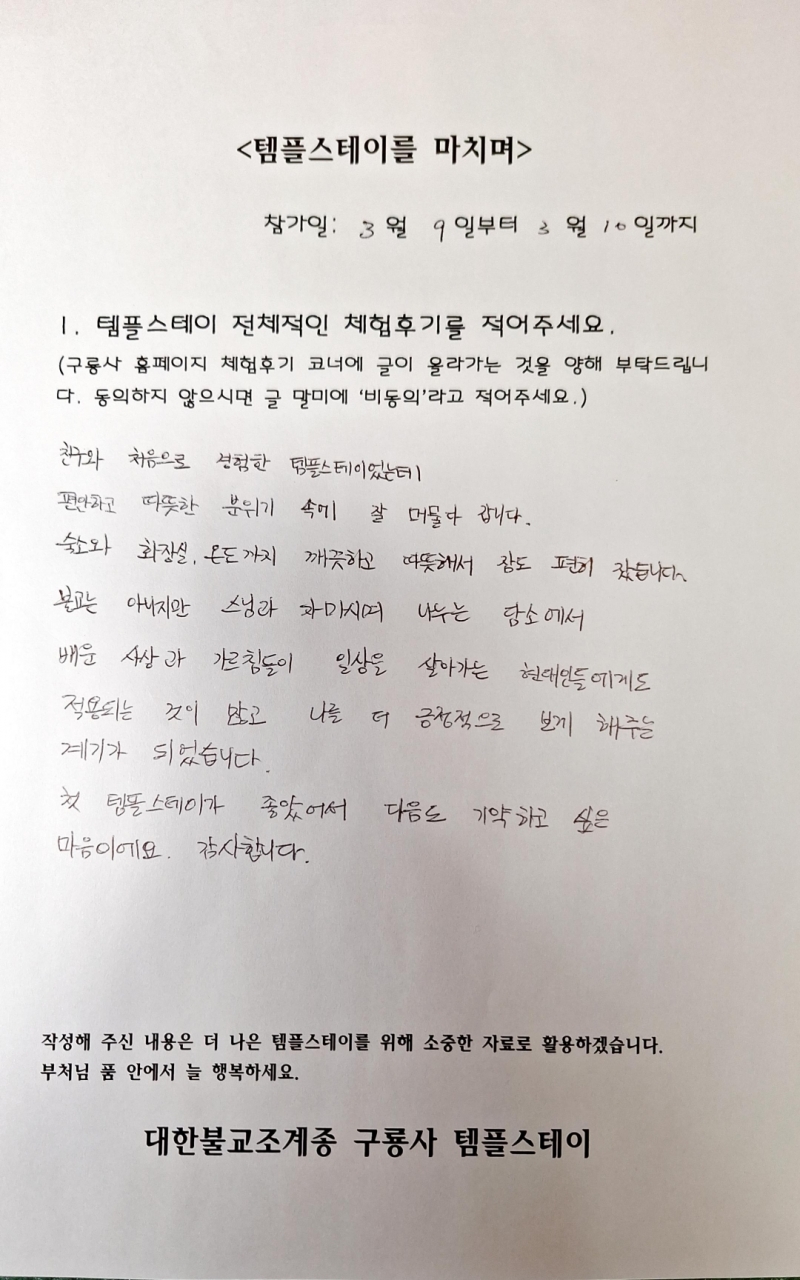 <템플스테이를 마치며>
참가일: 3 월 9 일부터 3 월 10 일까지
1. 템플스테이 전체적인 체험후기를 적어주세요.
(구룡사 홈페이지 체험후기 코너에 글이 올라가는 것을 양해 부탁드립니
다. 동의하지 않으시면 글 말미에 ‘비동의’라고 적어주세요.)
친구와 처음으로 경험한 템플스테이었는데
편안하고 따뜻한 분위기 속에 잘 머물다 갑니다.
숙소와 화장실, 온도까지 깨끗하고 따뜻해서 잠도 편히 잤습니다.
불교는 아니지만 스님과 차마시며 나누는 담소에서
배운 사상과 가르침들이 일상을 살아가는 현대인들에게도
적용되는 것이 많고 나를 더 긍정적으로 보게 해주는
계기가 되었습니다.
첫 템플스테이가 좋았어서 다음도 기약하고 싶은
마음이에요. 감사합니다.
작성해 주신 내용은 더 나은 템플스테이를 위해 소중한 자료로 활용하겠습니다.
부처님 품 안에서 늘 행복하세요.
대한불교조계종 구룡사 템플스테이